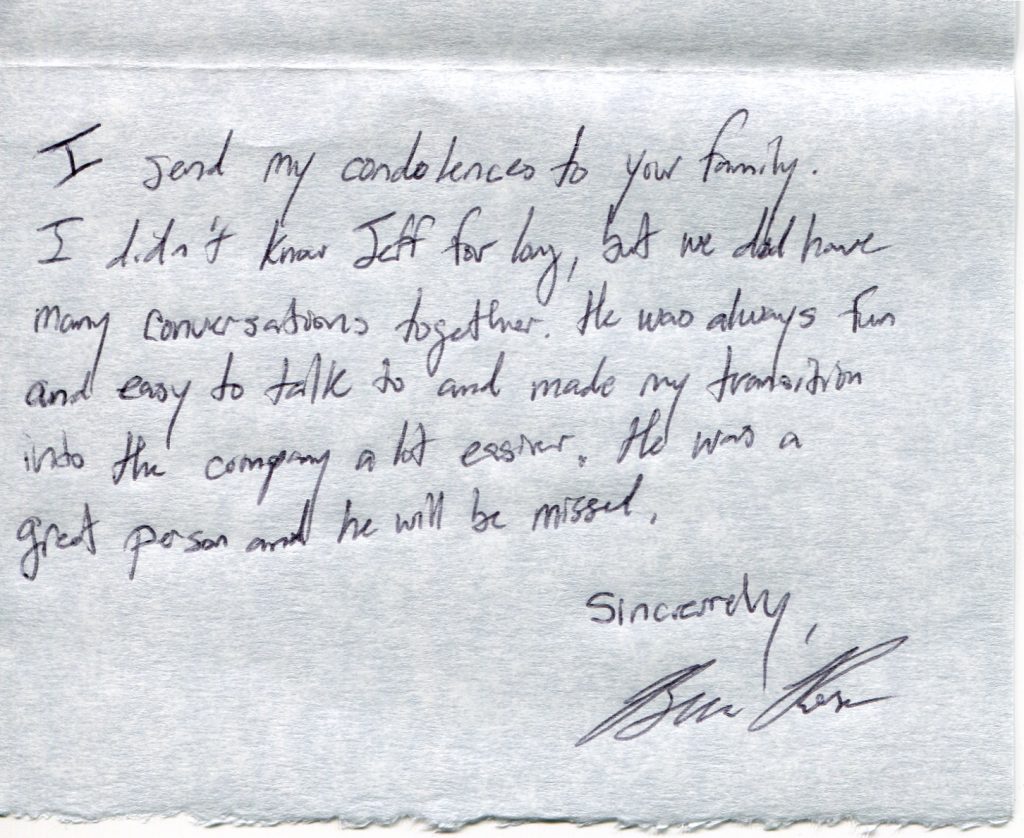 I send my condolences to your family.
I didn't know Jeff for long, but we did have
many conversations together. He was always fun
and easy to talk to and made my transition
into the company a lot easier. He was a
great person and he will be missed.
Sincerely,